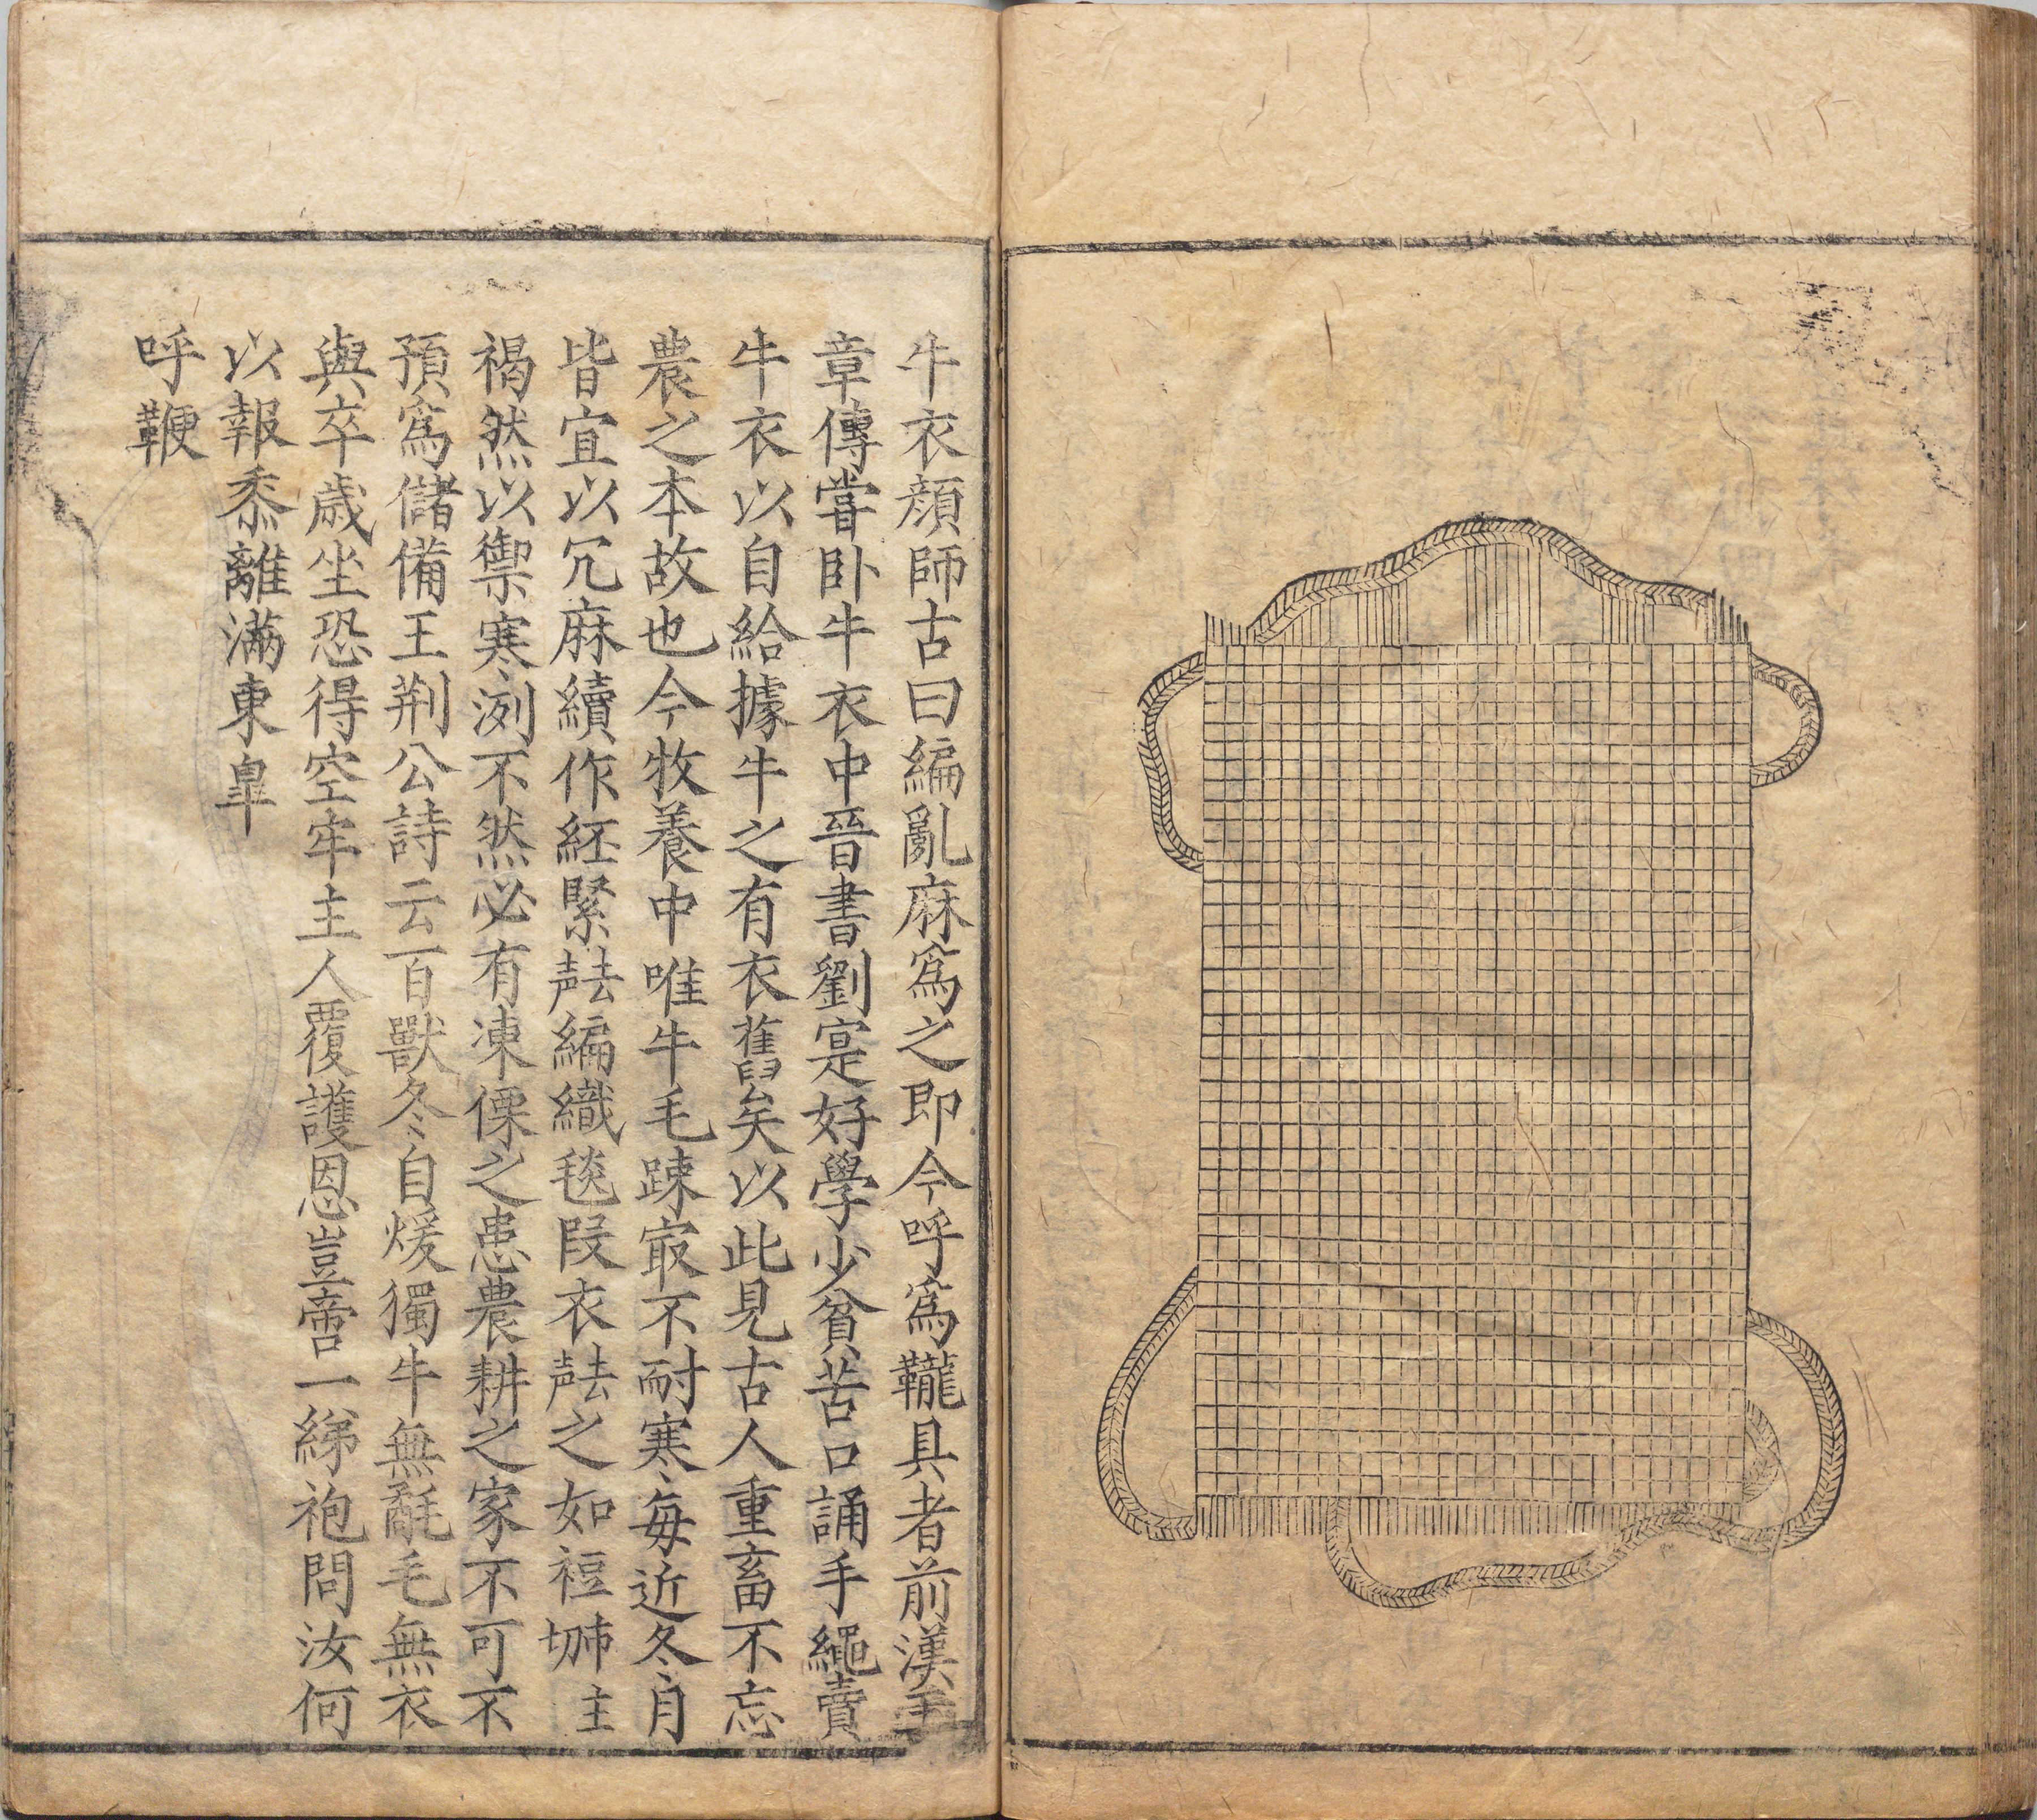 牛衣顔師古曰編亂麻爲之即今呼爲龓具者前漢王
章傳嘗卧牛衣中晉書劉寔好學少貧苦口誦手繩賣
牛衣以自給據牛之有衣舊矣以此見古人重畜不忘
農之本故也今牧養中唯牛毛踈㝡不耐寒每近冬月
皆宜以冗麻續作経緊編織毯段衣之如裋主
褐然以禦寒冽不然必有凍慄之患農耕之家不可不
預爲儲備王荆公詩云百獸冬自煖獨牛無氄毛無衣
與卒歳坐恐得空牢主人覆護恩豈啻一綈袍問汝何
以報黍離滿東皐
呼鞭